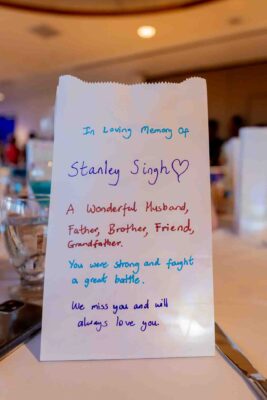 In Loving Memory Of
Stanley Singh♡
A Wonderful Husband,
Father, Brother, Friend,
Grandfather.
You were strong and faught
a great battle.
We miss you and will
always love you.